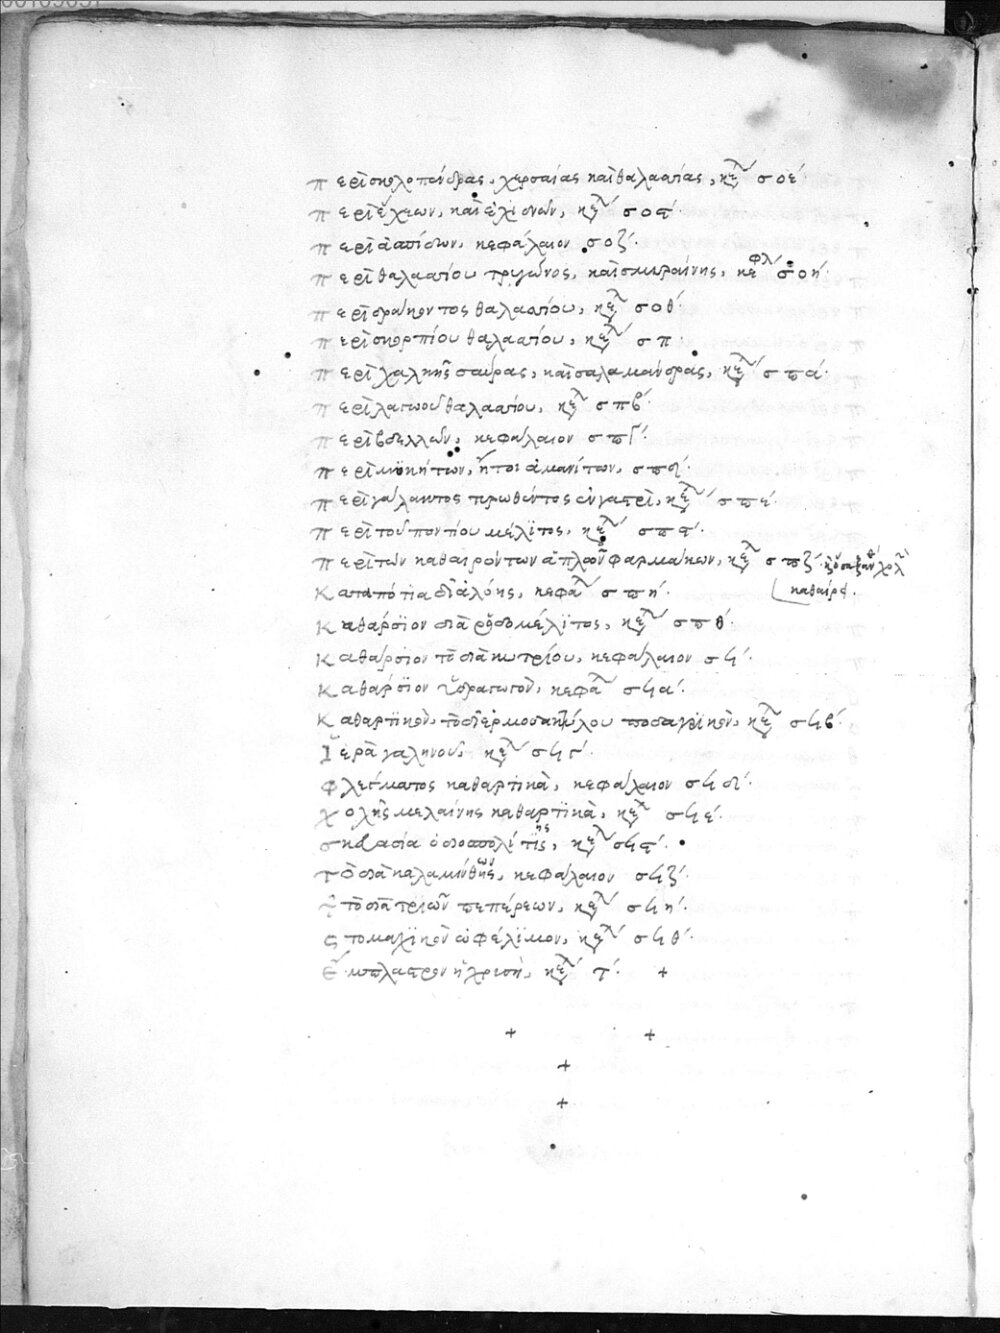 περὶ σκολοπένδρας, χερσαίας καὶ θαλασσίας, κεφ σοε΄
περὶ ἔχεων, καὶ ἐχιδνῶν, κεφ σοϛ΄.
περὶ ἀσπίδων, κεφάλαιον σοζ΄.
περὶ θαλασσίου τρυγῶνος, καὶ σμυραίνης, κεφλ σοη΄.
περὶ δράκοντος θαλασσίου, κεφ σοθ΄
περὶ σκορπίου θαλασσίου, κεφ σπ.
περὶ χαλκῆς σαύρας, καὶ σαλαμάνδρας, κεφ σπα΄.
περὶ λαγωοῦ θαλασσίου, κεφ σπβ΄.
περὶ βδελλῶν, κεφάλαιον σπγ΄.
περὶ μυκήτων, ἤτοι ἀμανίτων, σπδ΄.
περὶ γάλακτος τρωθέντος ἐν γαστρὶ, κεφ σπε΄.
περὶ τοῦ ποντίου μέλϊτος, κεφ σπϛ΄.
περὶ τῶν καθαιρόντων ἁπλῶν φαρμάκων, κεφ σπζ΄
καθαίρε.
Καταπότια διὰ ἀλόης, κεφα σπη΄.
Καθάρσϊον διὰ ῥοδομέλϊτος, κεφ σπθ΄
Καθάρσϊον τὸ διὰ κιτρίου, κεφάλαιον σϟ΄.
Καθάρσϊον ὑδραγωγὸν, κεφα σϟα΄.
Καθαρτϊκὸν, τὸ δι ἑρμοδακτύλου ποδαγρϊκὸν, κεφ σϟβ΄.
Ἱερὰ γαληνοῦ, κεφ σϟγ΄.
Φλέγματος καθαρτϊκὰ, κεφάλαιον σϟδ΄.
Χολῆς μελαίνης καθαρτϊκὰ, κεφ σϟε΄.
σκευασία ὁ διοσπολίτης, κεφ σϟϛ΄.
Τὸ διὰ καλαμίνθης, κεφάλαιον σϟζ΄
τὸ διὰ τριῶν πεπέρεων, κεφ σϟη΄.
Στομαχϊκὸν ὠφέλϊμον, κεφ σϟθ΄.
Ἔμπλαστρον ἡ χρυσῆ, κεφ τ΄. +
+ +
+
+